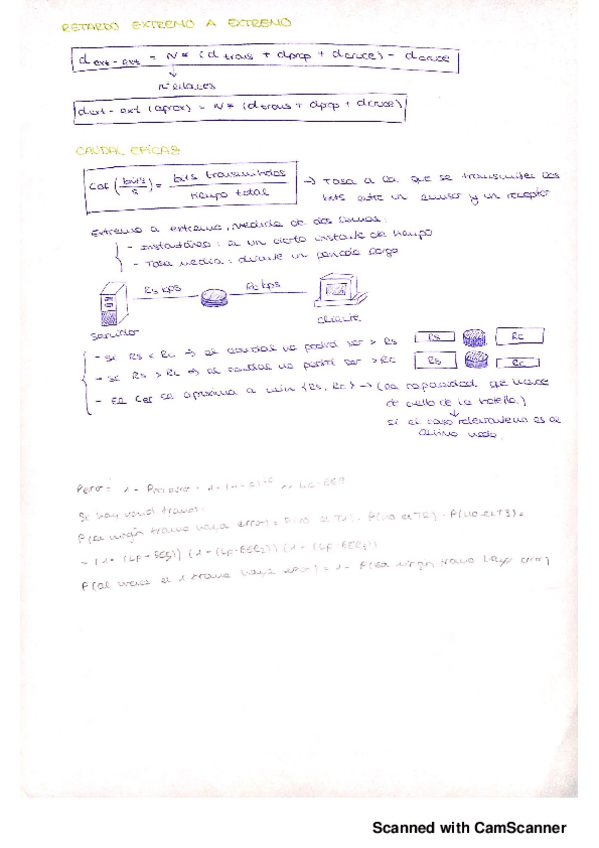 RETARDO EXTREMO A EXTREMO
dext-ext = N * (dtrans + dprop + dcruce) - dcruce
↓
nº enlaces
dext-ext (aprox) = N * (dtrans + dprop + dcruce)
CAUDAL EFICAZ
Cef (bits/s) = bits transmitidos / tiempo total → Tasa a la que se transmiten los
bits entre un emisor y un receptor
Extremo a extremo, medida de dos formas:
- instantáneo: en un cierto instante de tiempo
- Tasa media: durante un periodo largo
Rs bps
Rc bps
servidor
cliente
- si Rs < Rc ⇒ el caudal no podrá ser > Rs
Rs
Rc
- si Rs > Rc ⇒ el caudal no podrá ser > Rc
Rs
Rc
- El Cef se aproxima a min {Rs, Rc} → (la capacidad que hace
de cuello de la botella)
↓
si el caso es el
último nodo.
Perror = 1 - Pno error = 1 - ≈ Lp·BER
Si hay varios tramos:
P(en ningún tramo haya error) = P(no en T1) · P(no en T2) · P(no en T3) =
= (1 - (Lp · BER1)) (1 - (Lp · BER2)) (1 - (Lp · BER3))
P(al menos en 1 tramo haya error) = 1 - P(en ningún tramo haya error)
Scanned with CamScanner